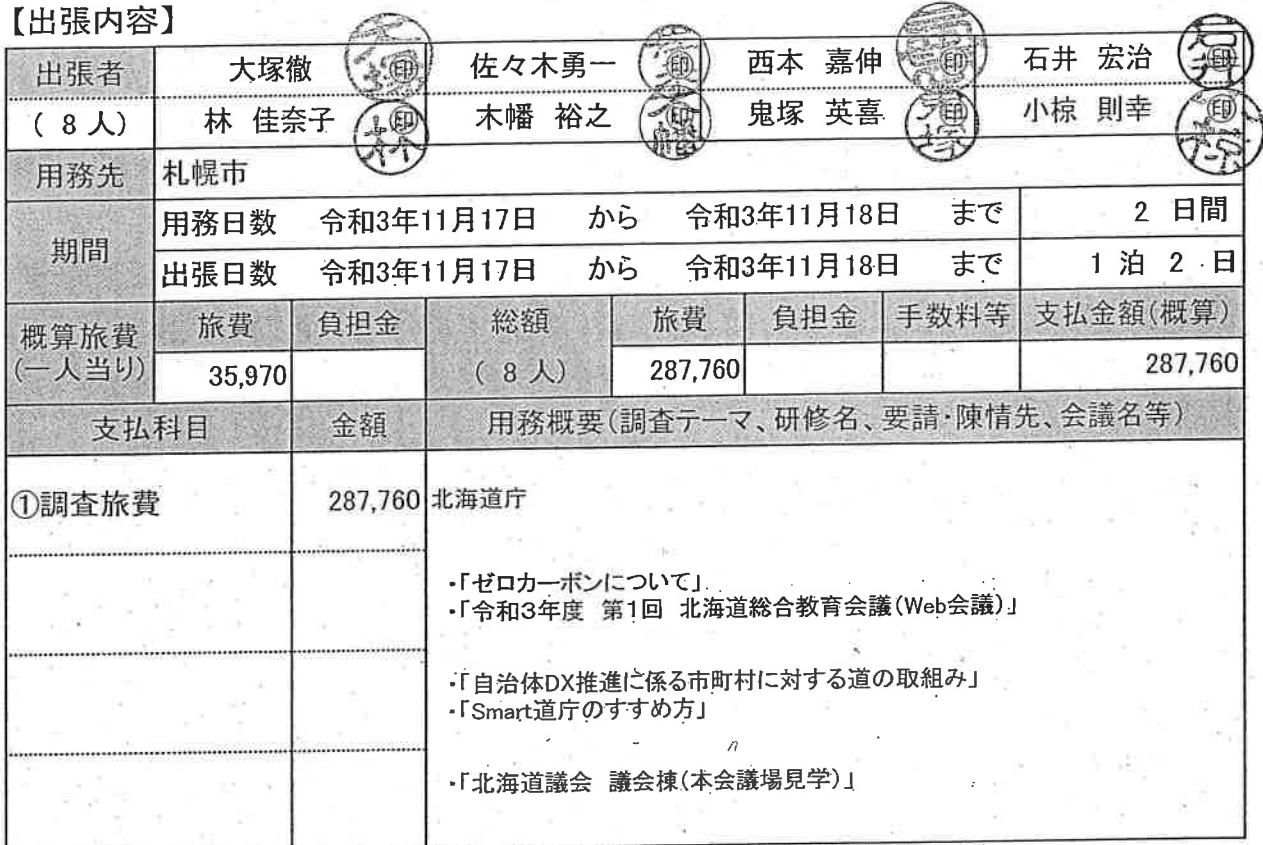 【出張内容】
出張者 大塚徹 印 佐々木勇一 印 西本 嘉伸 印 石井 宏治 印
( 8 人) 林 佳奈子 印 木幡 裕之 印 鬼塚 英喜 印 小椋 則幸 印
用務先 札幌市
期間 用務日数 令和3年11月17日 から 令和3年11月18日 まで 2 日間
出張日数 令和3年11月17日 から 令和3年11月18日 まで 1 泊 2 日
概算旅費 (一人当り) 旅費 負担金 総額 旅費 負担金 手数料等 支払金額(概算)
35,970 ( 8 人) 287,760 287,760
支払科目 金額 用務概要(調査テーマ、研修名、要請・陳情先、会議名等)
①調査旅費 287,760 北海道庁
・「ゼロカーボンについて」
・「令和3年度 第1回 北海道総合教育会議(Web会議)」
・「自治体DX推進に係る市町村に対する道の取組み」
・「Smart道庁のすすめ方」
・「北海道議会 議会棟(本会議場見学)」